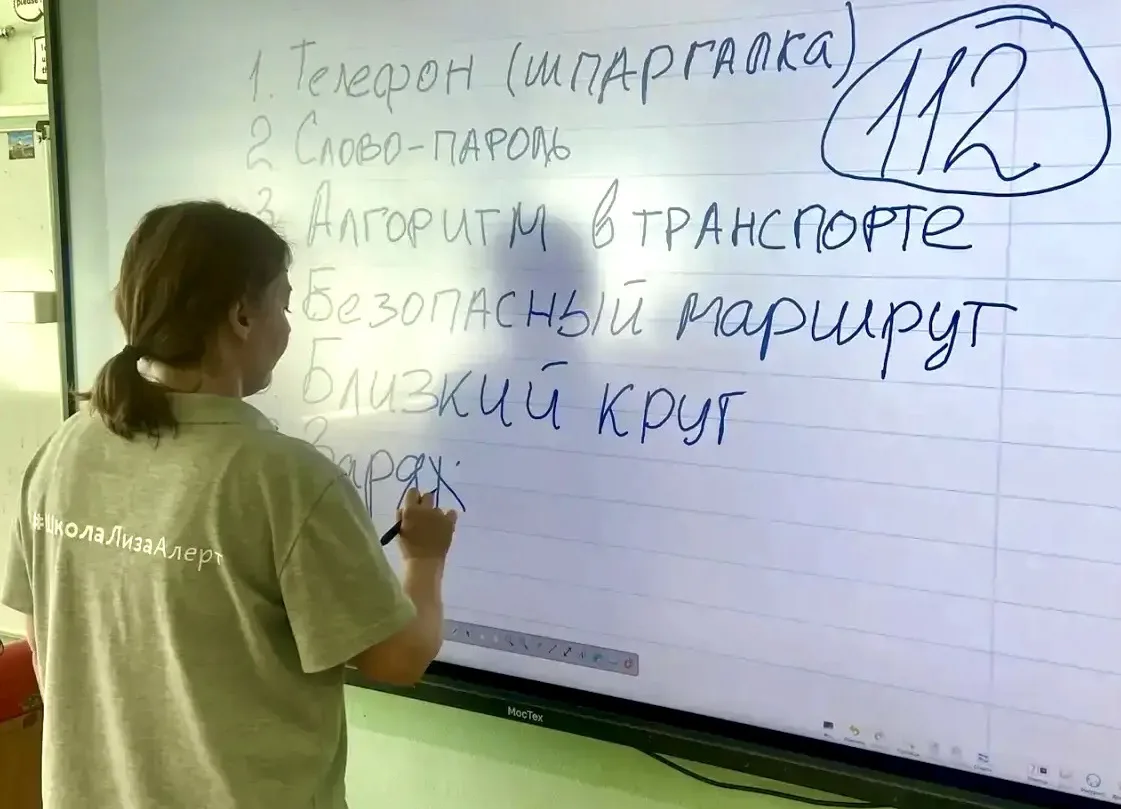 1. Телефон (шпаргалка)
112
2 Слово-пароль
3 Алгоритм в транспорте
Безопасный маршрут
Близкий круг
Заряж
#ШколаЛизаАлерт
МосТех